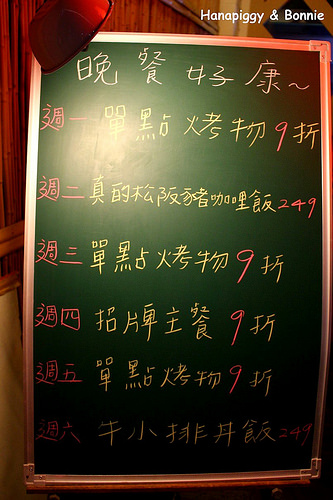 Hanapiggy & Bonnie
晚餐好康~
週一 單點烤物9折
週二 真的松阪豬咖哩飯249
週三 單點烤物9折
週四 招牌主餐9折
週五 單點烤物9折
週六 牛小排丼飯249